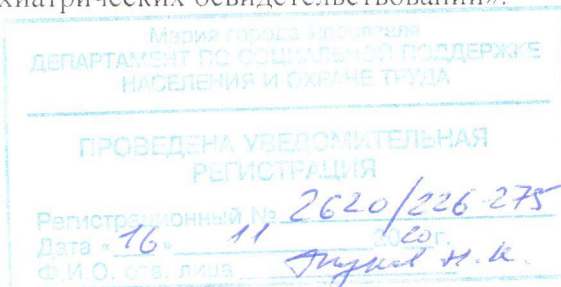 хиатрических освидетельствований».
Мэрия города Ярославля
ДЕПАРТАМЕНТ ПО СОЦИАЛЬНОЙ ПОДДЕРЖКЕ
НАСЕЛЕНИЯ И ОХРАНЕ ТРУДА
ПРОВЕДЕНА УВЕДОМИТЕЛЬНАЯ
РЕГИСТРАЦИЯ
Регистрационный № 2620/226-275
Дата «16» 11 2020г.
Ф.И.О. отв. лица Н.К.